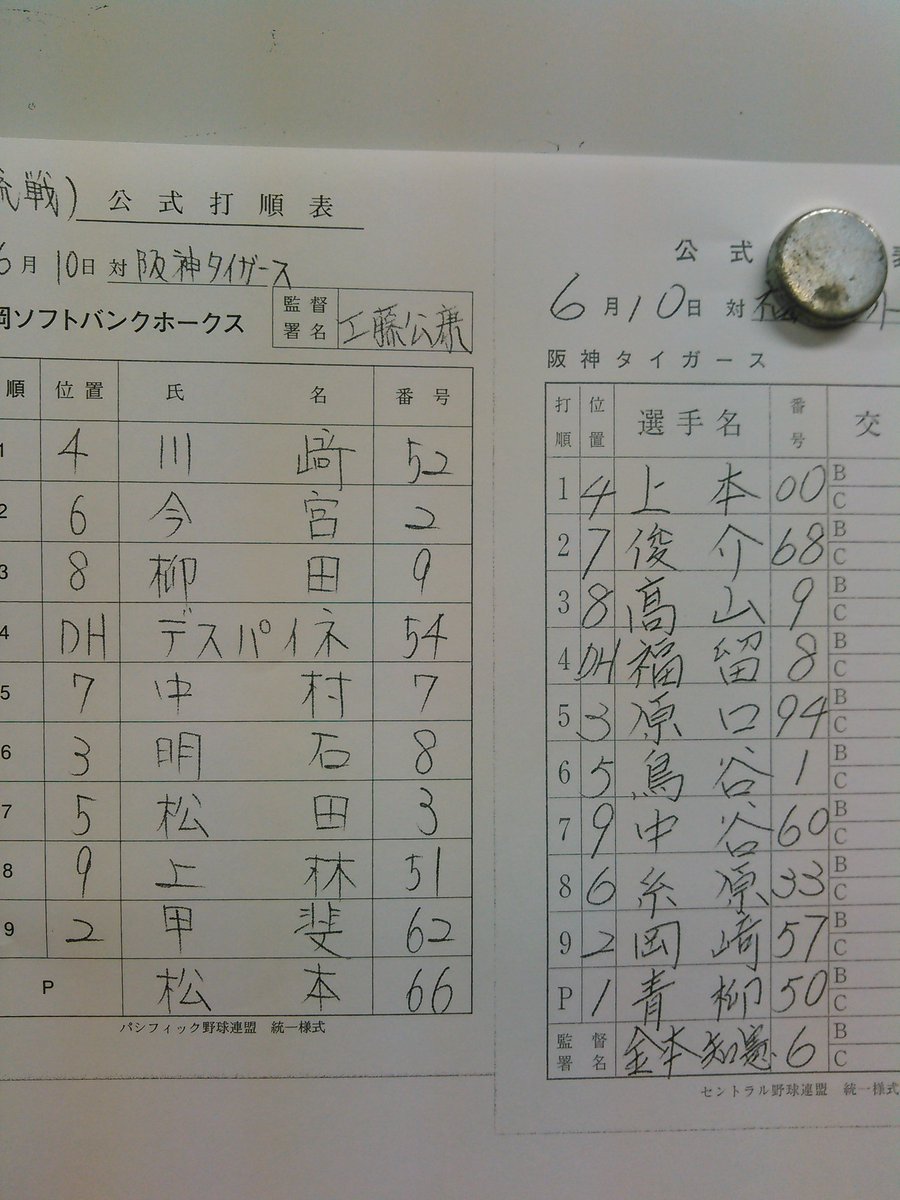 流戦) 公式打順表
6月10日 対 阪神タイガース
岡ソフトバンクホークス 監督署名 工藤公康
順 位置 氏名 番号
1 4 川﨑 52
2 6 今宮 2
3 8 柳田 9
4 DH デスパイネ 54
5 7 中村 7
6 3 明石 8
7 5 松田 3
8 9 上林 51
9 2 甲斐 62
P 松本 66
パシフィック野球連盟 統一様式
公式 表
6月10日 対
阪神タイガース
打順 位置 選手名 番号 交
1 4 上本 00 B C
2 7 俊介 68 B C
3 8 髙山 9 B C
4 DH 福留 8 B C
5 3 原口 94 B C
6 5 鳥谷 1 B C
7 9 中谷 60 B C
8 6 糸原 33 B C
9 2 岡﨑 57 B C
P 1 青柳 50 B C
監督署名 金本知憲 6 B C
セントラル野球連盟 統一様式